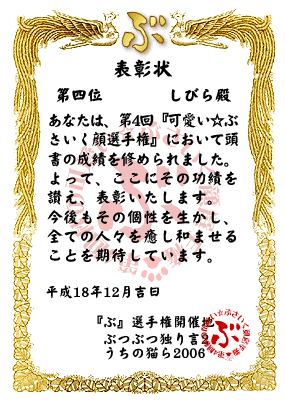 ぶ
表彰状
第四位 しびら殿
あなたは、第4回『可愛い☆ぶ
さいく顔選手権』において頭
書の成績を修められました。
よって、ここにその功績を
讃え、表彰いたします。
今後もその個性を生かし、
全ての人々を癒し和ませる
ことを期待しています。
平成18年12月吉日
『ぶ』選手権開催地
ぶつぶつ独り言2
うちの猫ら2006
ぶ